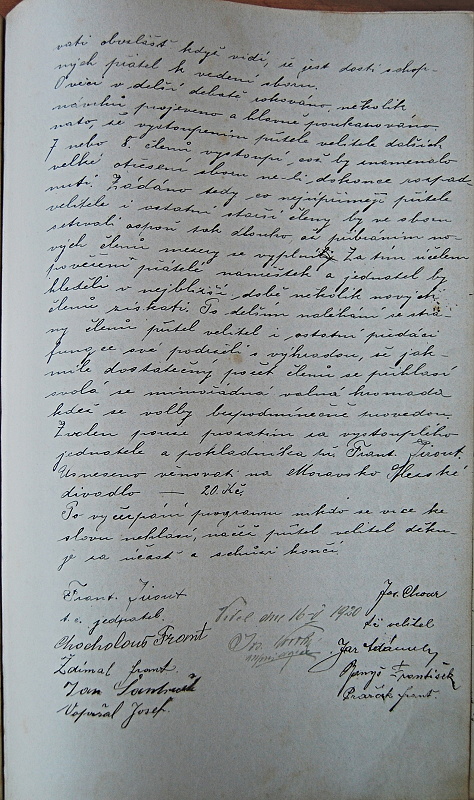 vati obzvlášť když vidí, že jest dosti schop-
ných přátel k vedení sboru.
O věci v delší debatě rokováno, několik
návrhů projeveno a hlavně poukazováno
na to, že vystoupením přítele velitele dalších
7 nebo 8. členů vystoupí, což by znamenalo
velké otřesení sboru ne-li dokonce rozpad-
nutí. Žádáno tedy co nejupřímněji přítele
velitele i ostatní starší členy by ve sboru
setrvali aspoň tak dlouho, až přibráním no-
vých členů mezery se vyplní. Za tím účelem
pověřeni přátelé náměstek a jednatel by
hleděli v nejbližší době několik nových
členů získati. Po delším naléhání se stra-
ny členů přítel velitel i ostatní předáci
funkce své podrželi s výhradou, že jak-
mile dostatečný počet členů se přihlásí
svolá se mimořádná valná hromada
kdež se volby bezpodmínečně provedou.
Zvolen pouze prozatím za vystouplého
jednatele a pokladníka br. Frant. Jirout.
Usneseno věnovati na Moravsko Slezské
divadlo — 20 Kč.
Po vyčerpání programu nikdo se více ke
slovu nehlásí, načež přítel velitel děku-
je za účast a schůzi končí.
Frant. Jirout
t. č. jednatel.
Jos. Chour
t. č. velitel
Viděl dne 16-V 1920
Chocholouš Frant
Jar Adámek
Zdímal frant.
František
Jan
Vopršal Josef.
Pražák frant.